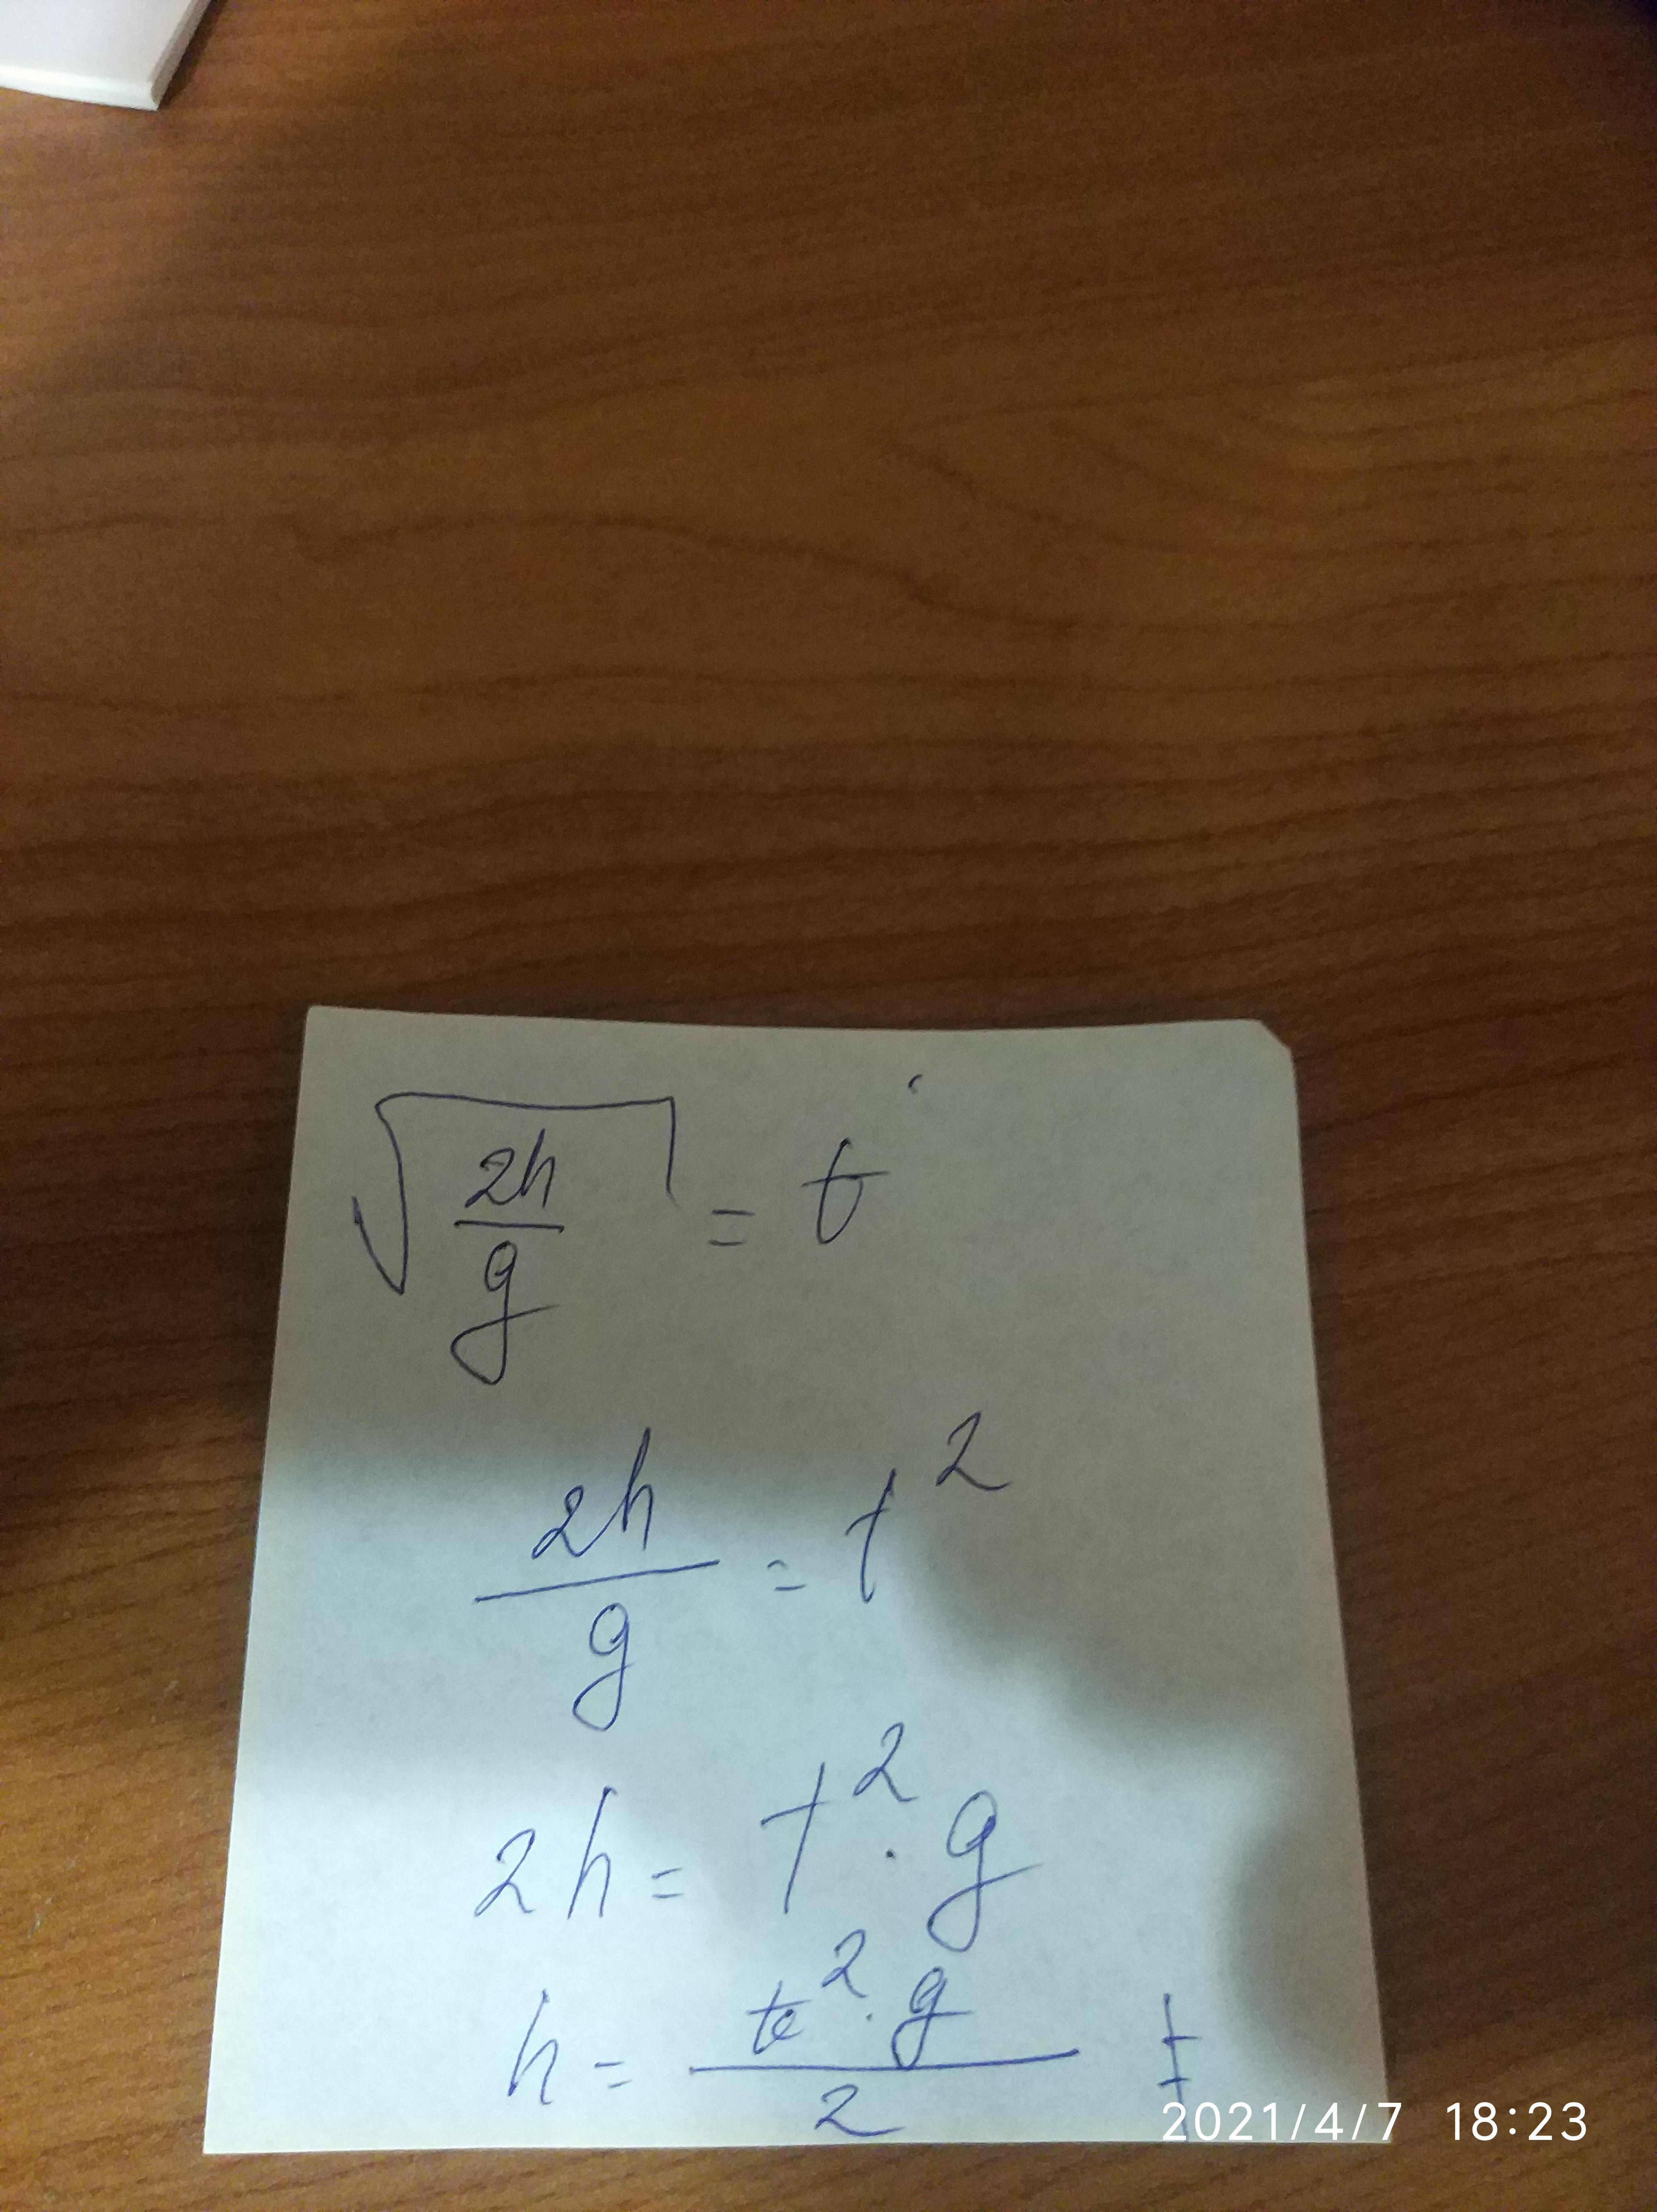 √(2h/g) = t
2h/g = t²
2h = t² · g
h = t² · g / 2
2021/4/7 18:23